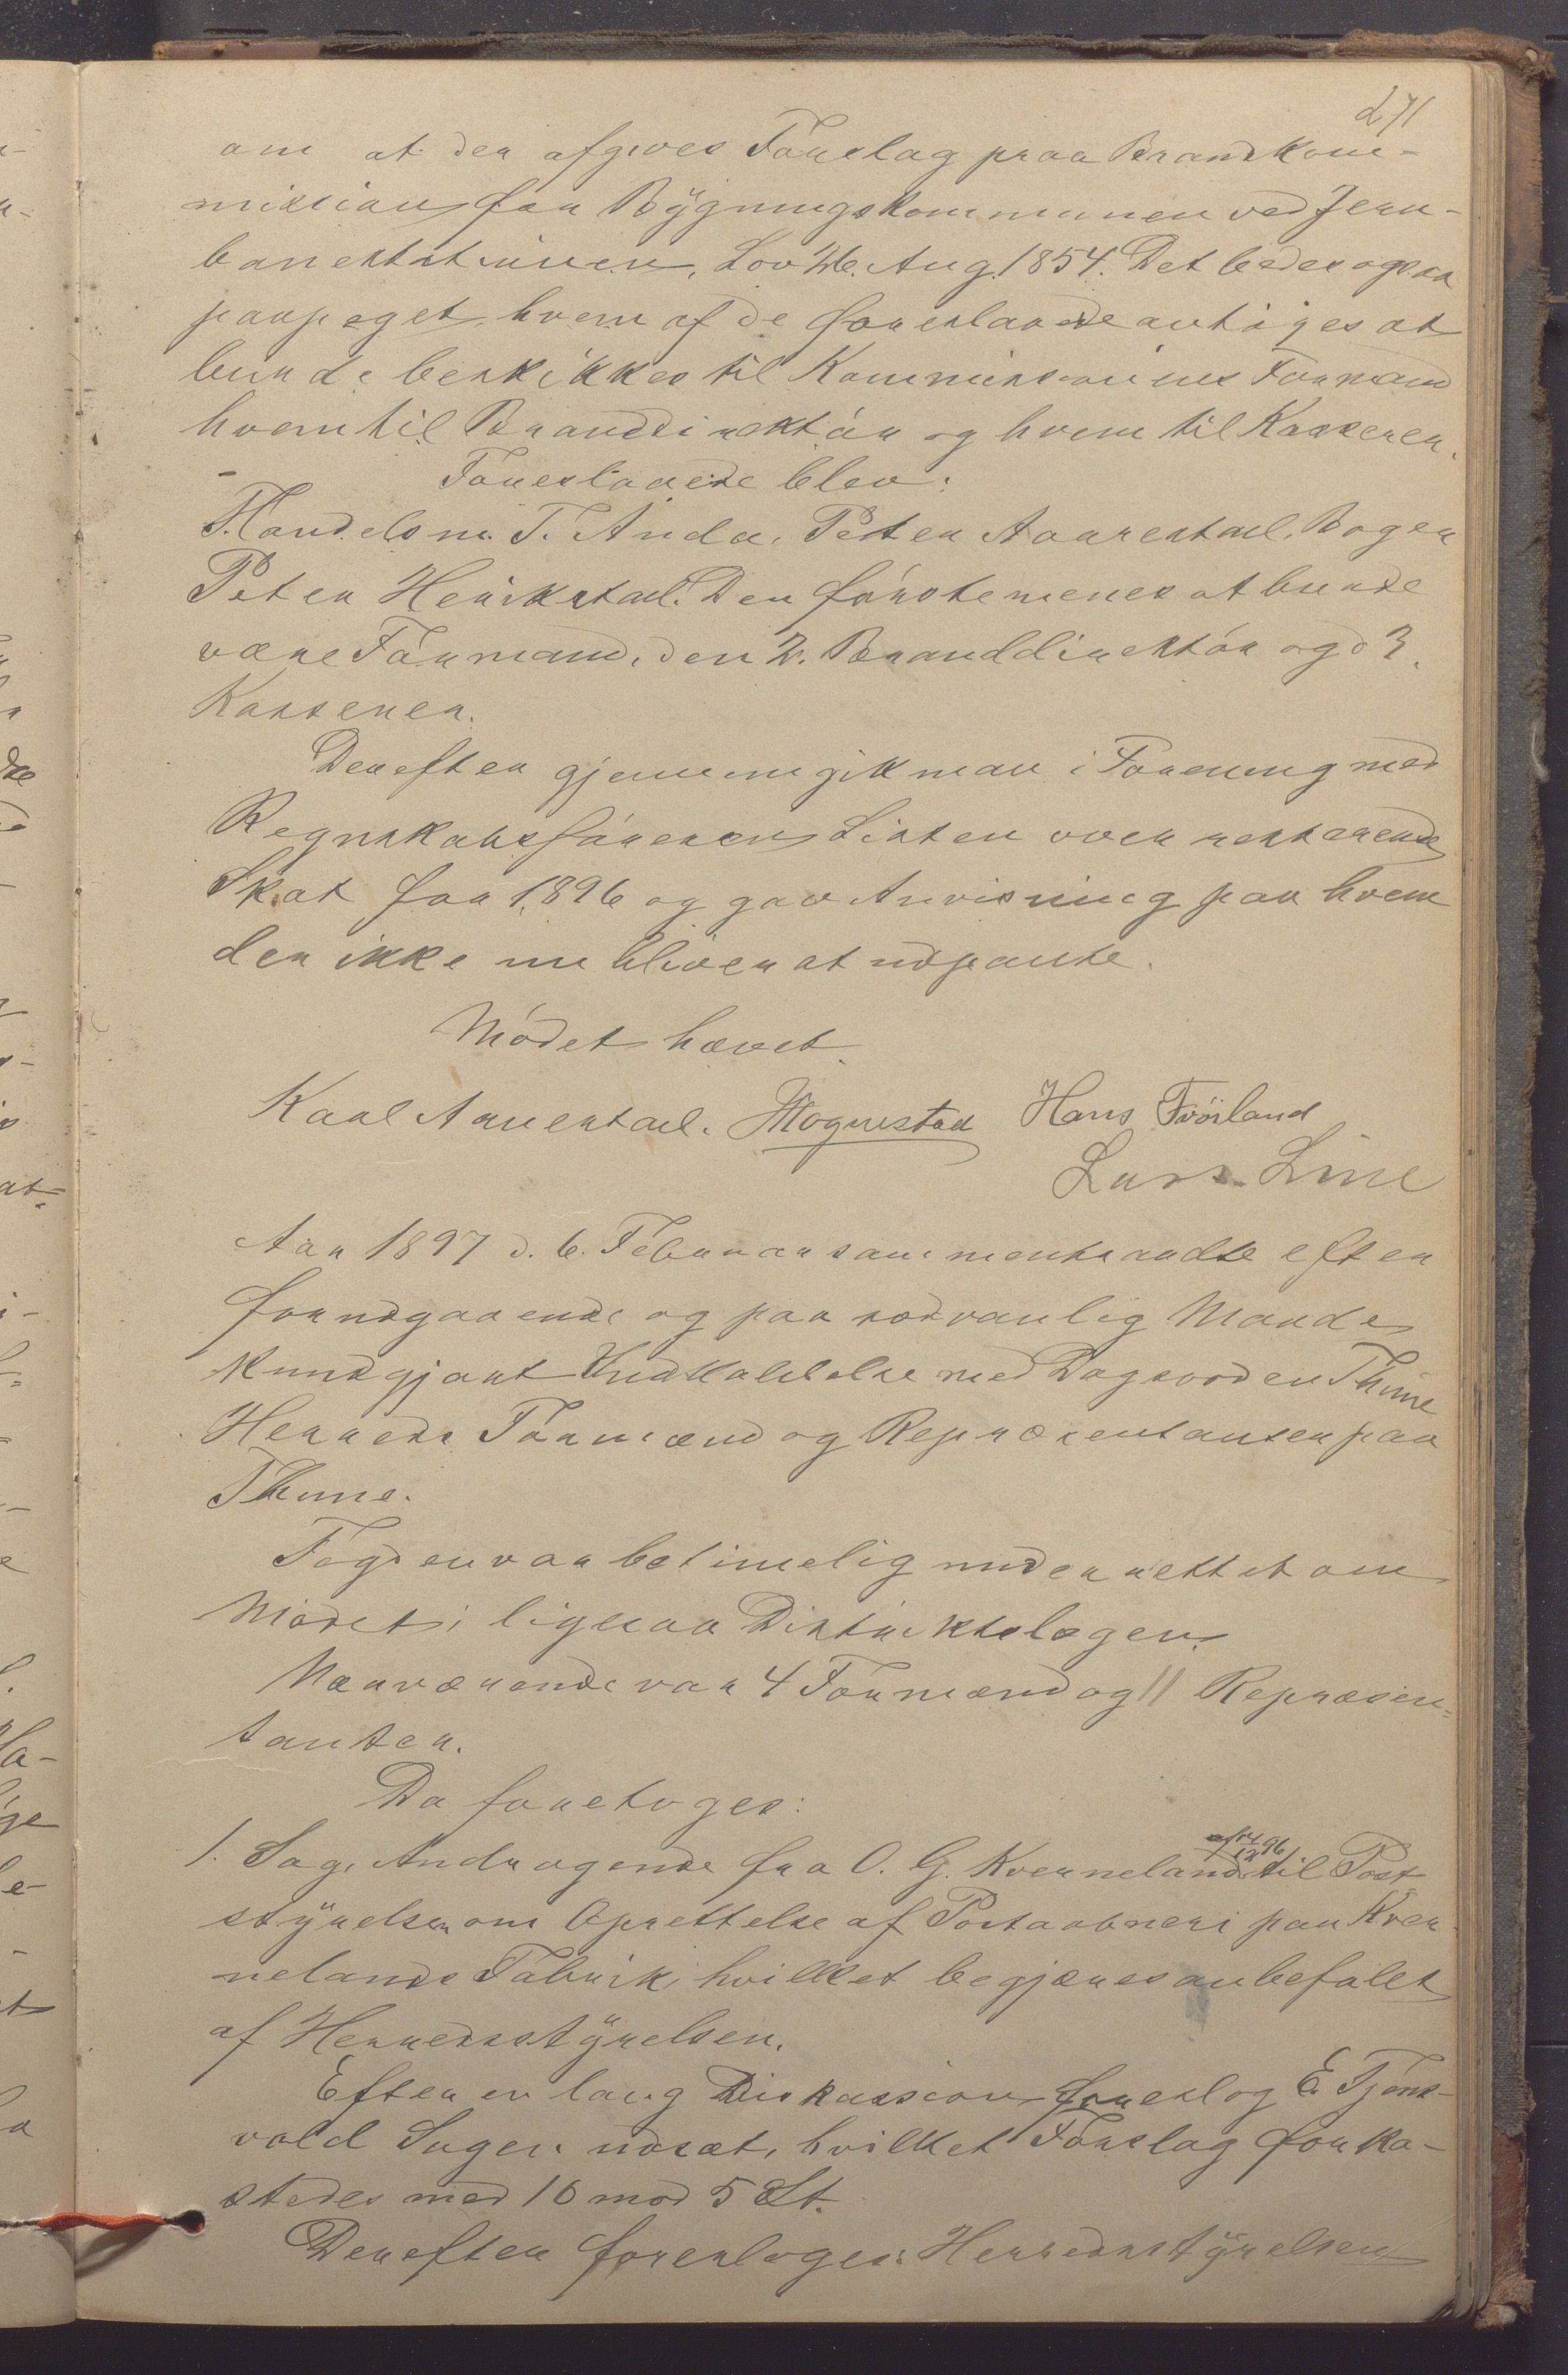 271
om at der afgives Forslag paa Brandkom-
mission for Bygningskommunen ved Jern-
banestationen, Lov 26. Aug. 1854. Det bedes ogsaa
paapeget, hvem af de foreslaaede antages at
burde beskikkes til Kommissionens Formand
hvem til Branddirektør og hvem til Kasserer.
Foreslaaede blev:
Handelsm. T. Anda, Peter Aarrestad, Bager
Peter Herikstad. Den første menes at burde
være Formand, den 2. Branddirektør og d 3.
Kasserer.
Derefter gjennemgik man i Forening med
Regnskabsføreren Listen over resterende
Skat for 1896 og gav Anvisning paa hvem
der ikke nu bliver at udpante.
Mødet hævet.
Karl Aarrestad. Mognestad Hans Frøiland
Lars Line
Aar 1897 d. 6. Februar sammentraadte efter
forudgaaende og paa sedvanlig Maade
kundgjort Indkaldelse med Dagsorden Thime
Herreds Formænd og Repræsentanter paa
Thime.
Fogden var betimelig underrettet om
Mødet, ligesaa Distriktslægen.
Nærværende var 4 Formænd og 11 Repræsen=
tanter.
Da foretoges:
af 14/12 96
1. Sag. Andragende fra O. G. Kverneland til Post
styrelsen om Oprettelse af Postaabneri paa Kver
nelands Fabrik, hvilket begjæres anbefalet
af Herredsstyrelsen.
Efter en lang Diskassion foreslog E. Tjøns-
vold Sagen udsat, hvilket Forslag forka-
stedes med 10 mod 5 St.
Derefter foresloges: Herredsstyrelsen